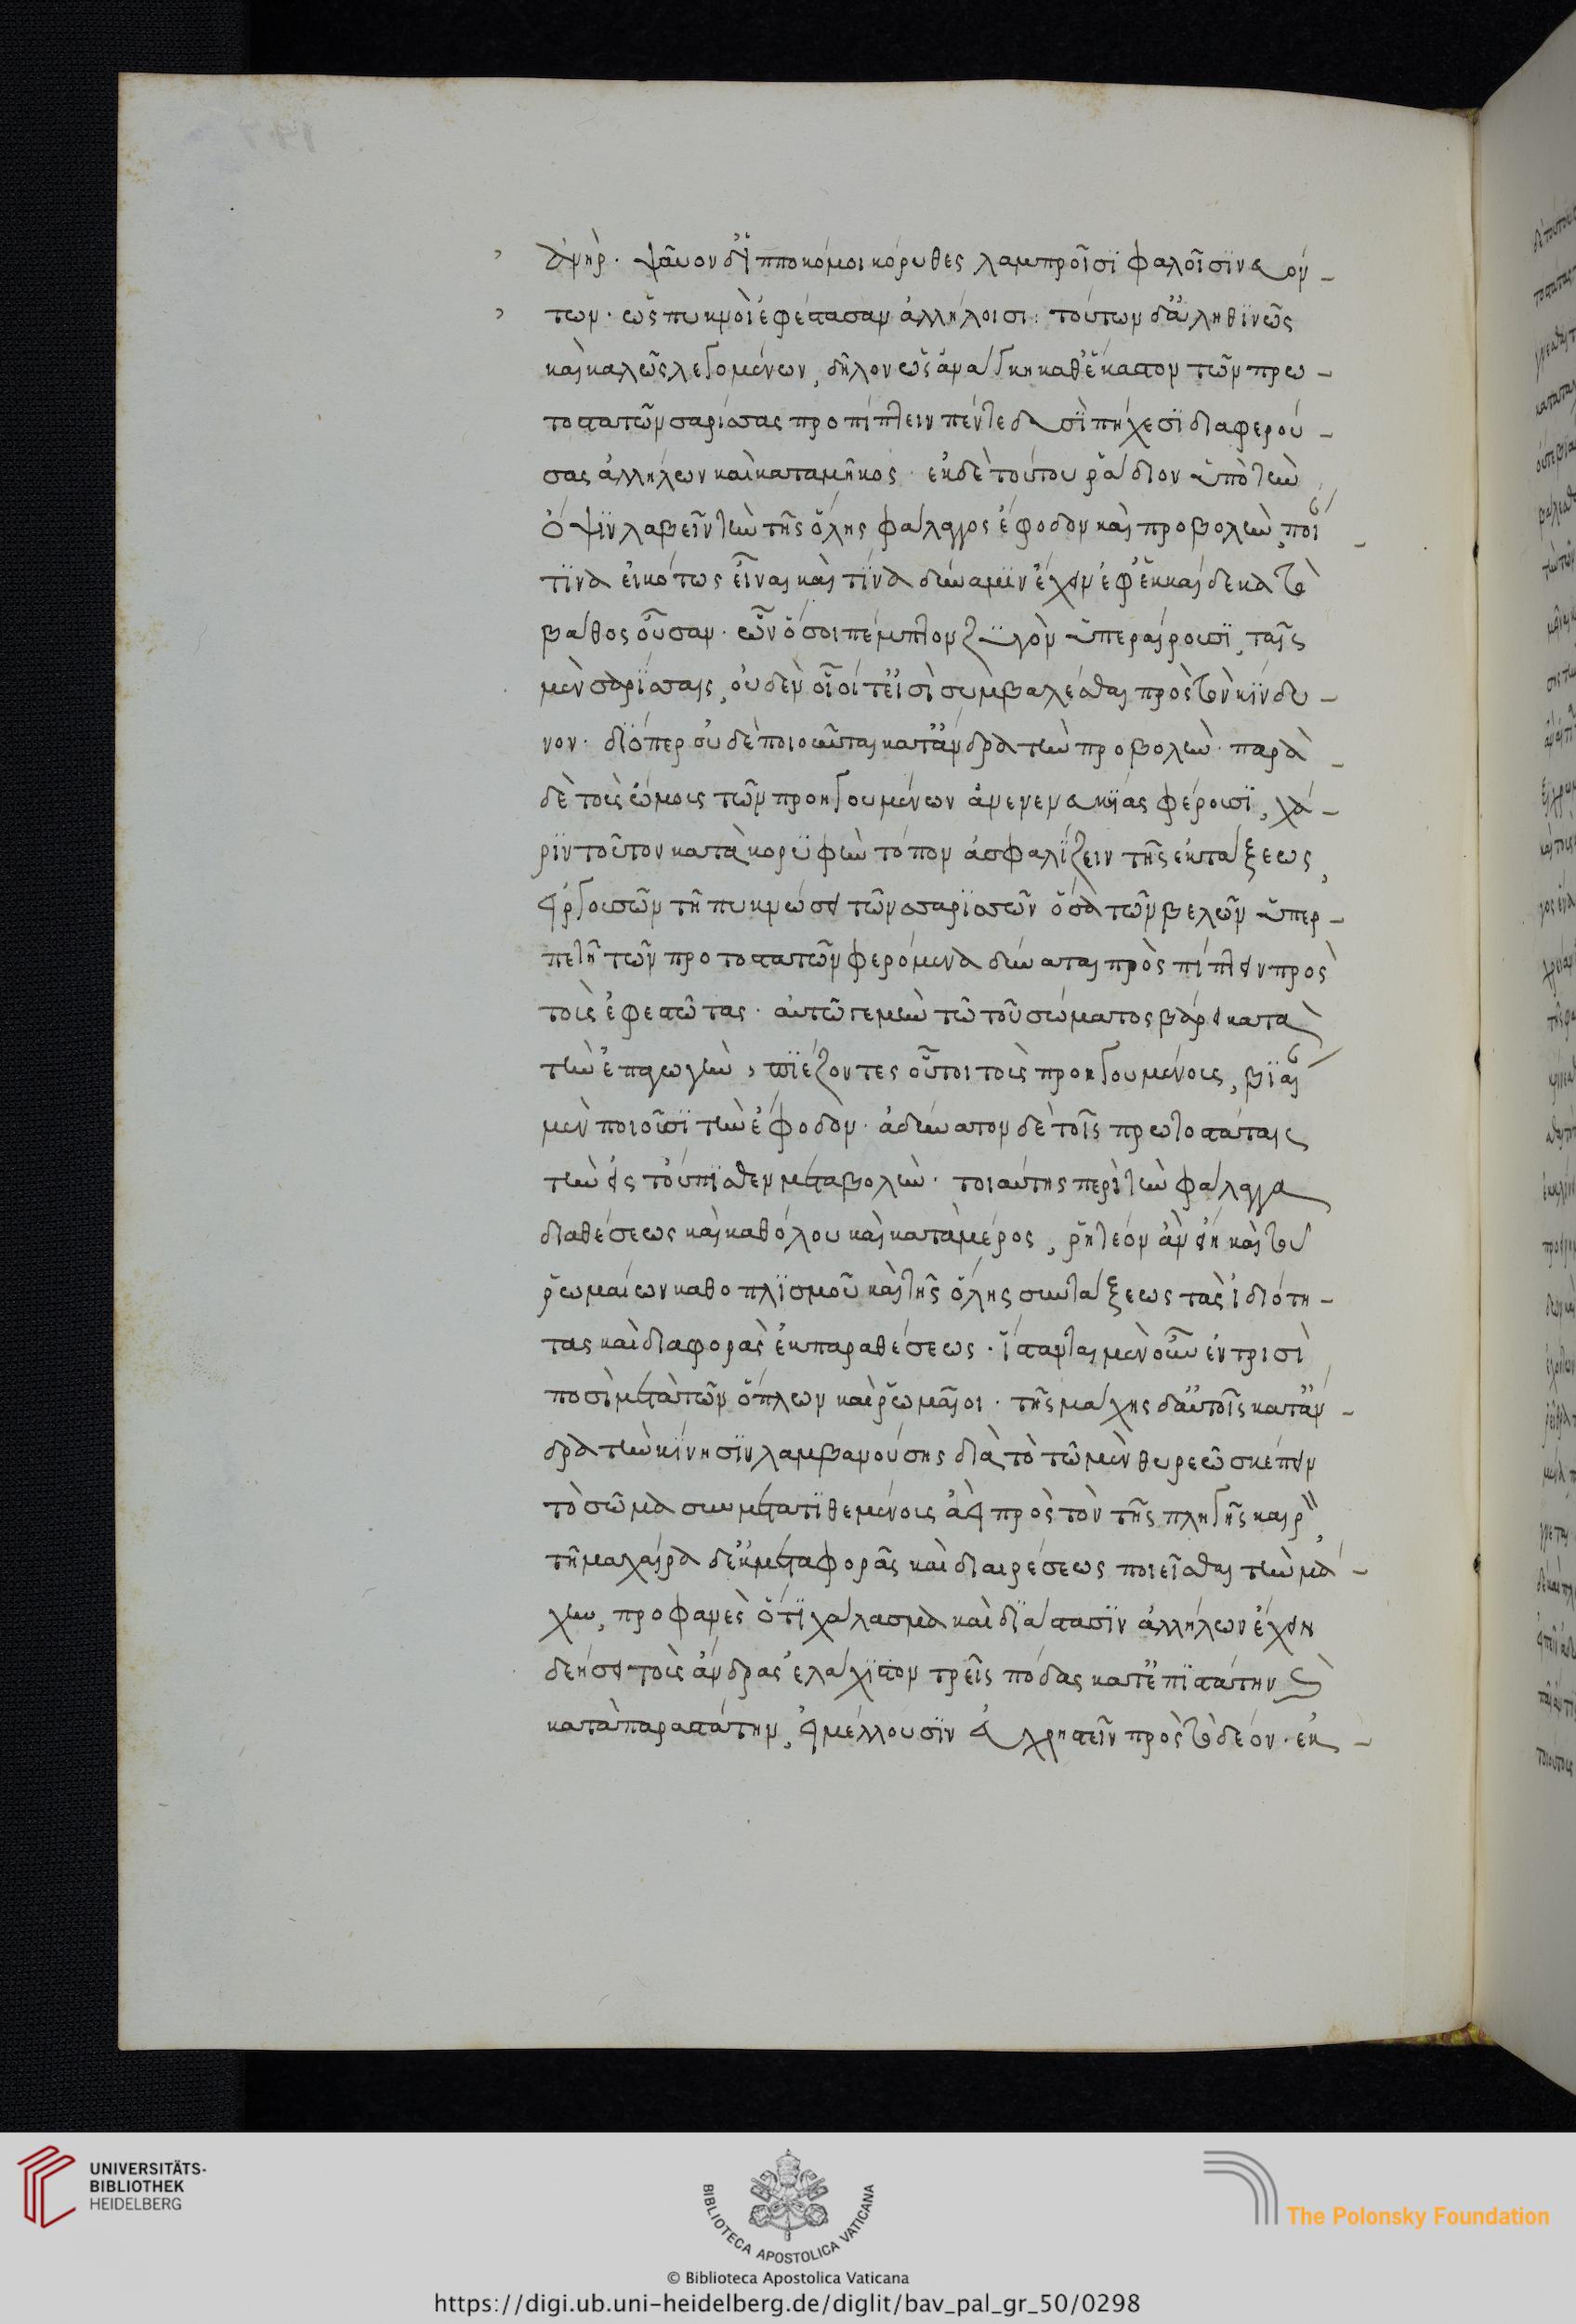 ἀνήρ. ψαῦον δ' ἱπποκόμοι κόρυθες λαμπροῖσι φαλοῖσι νευόν-
των. ὣς πυκνοὶ ἐφέστασαν ἀλλήλοισι: τούτων δ' ἀληθινῶς
καὶ καλῶς λεγομένων, δῆλον ὡς ἀνάγκη καθ' ἕκαστον τῶν πρω-
τοστατῶν σαρίσσας προπίπτειν πέντε δυσὶ πήχεσι διαφερού-
σας ἀλλήλων καὶ κατα μῆκος. ἐκ δὲ τούτου ῥάδιον ὑπὸ τὴν
ὄψιν λαβεῖν τὴν τῆς ὅλης φάλαγγος ἔφοδον καὶ προβολὴν, ποί
τινα εἰκότως εἶναι καὶ τίνα δύναμιν ἔχειν ἐφ' ἑκκαίδεκα τὸ
βάθος οὖσαν. ὧν ὅσοι πέμπτον ζυγὸν ὑπεραίρουσι, ταῖς
μὲν σαρίσσαις, οὐδὲν οἷοί τ' εἰσὶ συμβαλέσθαι πρὸς τὸν κίνδυ-
νον. διόπερ οὐδὲ ποιοῦνται κατ' ἄνδρα τὴν προβολὴν. παρὰ
δὲ τοὺς ὤμους τῶν προηγουμένων ἀνενευκυίας φέρουσι, χά-
ριν τοῦ τὸν κατὰ κορυφὴν τόπον ἀσφαλίζειν τῆς ἐκτάξεως,
εἰργουσῶν τῇ πυκνώσει τῶν σαρισσῶν ὅσα τῶν βελῶν ὑπερ-
πετῆ τῶν προτοστατῶν φερόμενα δύναται πρὸς πίπτειν πρὸς
τοὺς ἐφεστῶτας. αὐτῷ γε μὴν τῷ τοῦ σώματος βάρει κατὰ
τὴν ἐπαγωγὴν, πιέζοντες οὗτοι τοὺς προηγουμένους, βίαι
μὲν ποιοῦσι τὴν ἔφοδον. ἀδύνατον δὲ τοῖς πρωτοστάταις
τὴν εἰς τοὔπισθεν μεταβολὴν. τοιαύτης περὶ τὴν φάλαγγα
διαθέσεως καὶ καθόλου καὶ κατὰ μέρος, ῥητέον ἂν εἴη καὶ τοῦ
ῥωμαίων καθοπλισμοῦ καὶ τῆς ὅλης συντάξεως τὰς ἰδιότη-
τας καὶ διαφορὰς ἐκ παραθέσεως. ἵστανται μὲν οὖν ἐν τρισὶ
ποσὶ μετὰ τῶν ὅπλων καὶ ῥωμαῖοι. τῆς μάχης δ' αὐτοῖς κατ' ἄν-
δρα τὴν κίνησιν λαμβανούσης διὰ τὸ τῷ μὲν θυρεῷ σκέπειν
τὸ σῶμα συμμετατιθεμένους ἀεὶ πρὸς τὸν τῆς πληγῆς καιρὸν,
τῇ μαχαίρα δ' ἐκ μεταφορᾶς καὶ διαιρέσεως ποιεῖσθαι τὴν μά-
χην, προφανὲς ὅτι χάλασμα καὶ διάστασιν ἀλλήλων ἔχειν
δεήσει τοὺς ἄνδρας ἐλάχιστον τρεῖς πόδας κατ' ἐπιστάτην καὶ
κατὰ παραστάτην, εἰ μέλλουσιν εὐχρηστεῖν πρὸς τὸ δέον. ἐκ
UNIVERSITÄTS-
BIBLIOTHEK
HEIDELBERG
BIBLIOTECA APOSTOLICA VATICANA
© Biblioteca Apostolica Vaticana
The Polonsky Foundation
https://digi.ub.uni-heidelberg.de/diglit/bav_pal_gr_50/0298